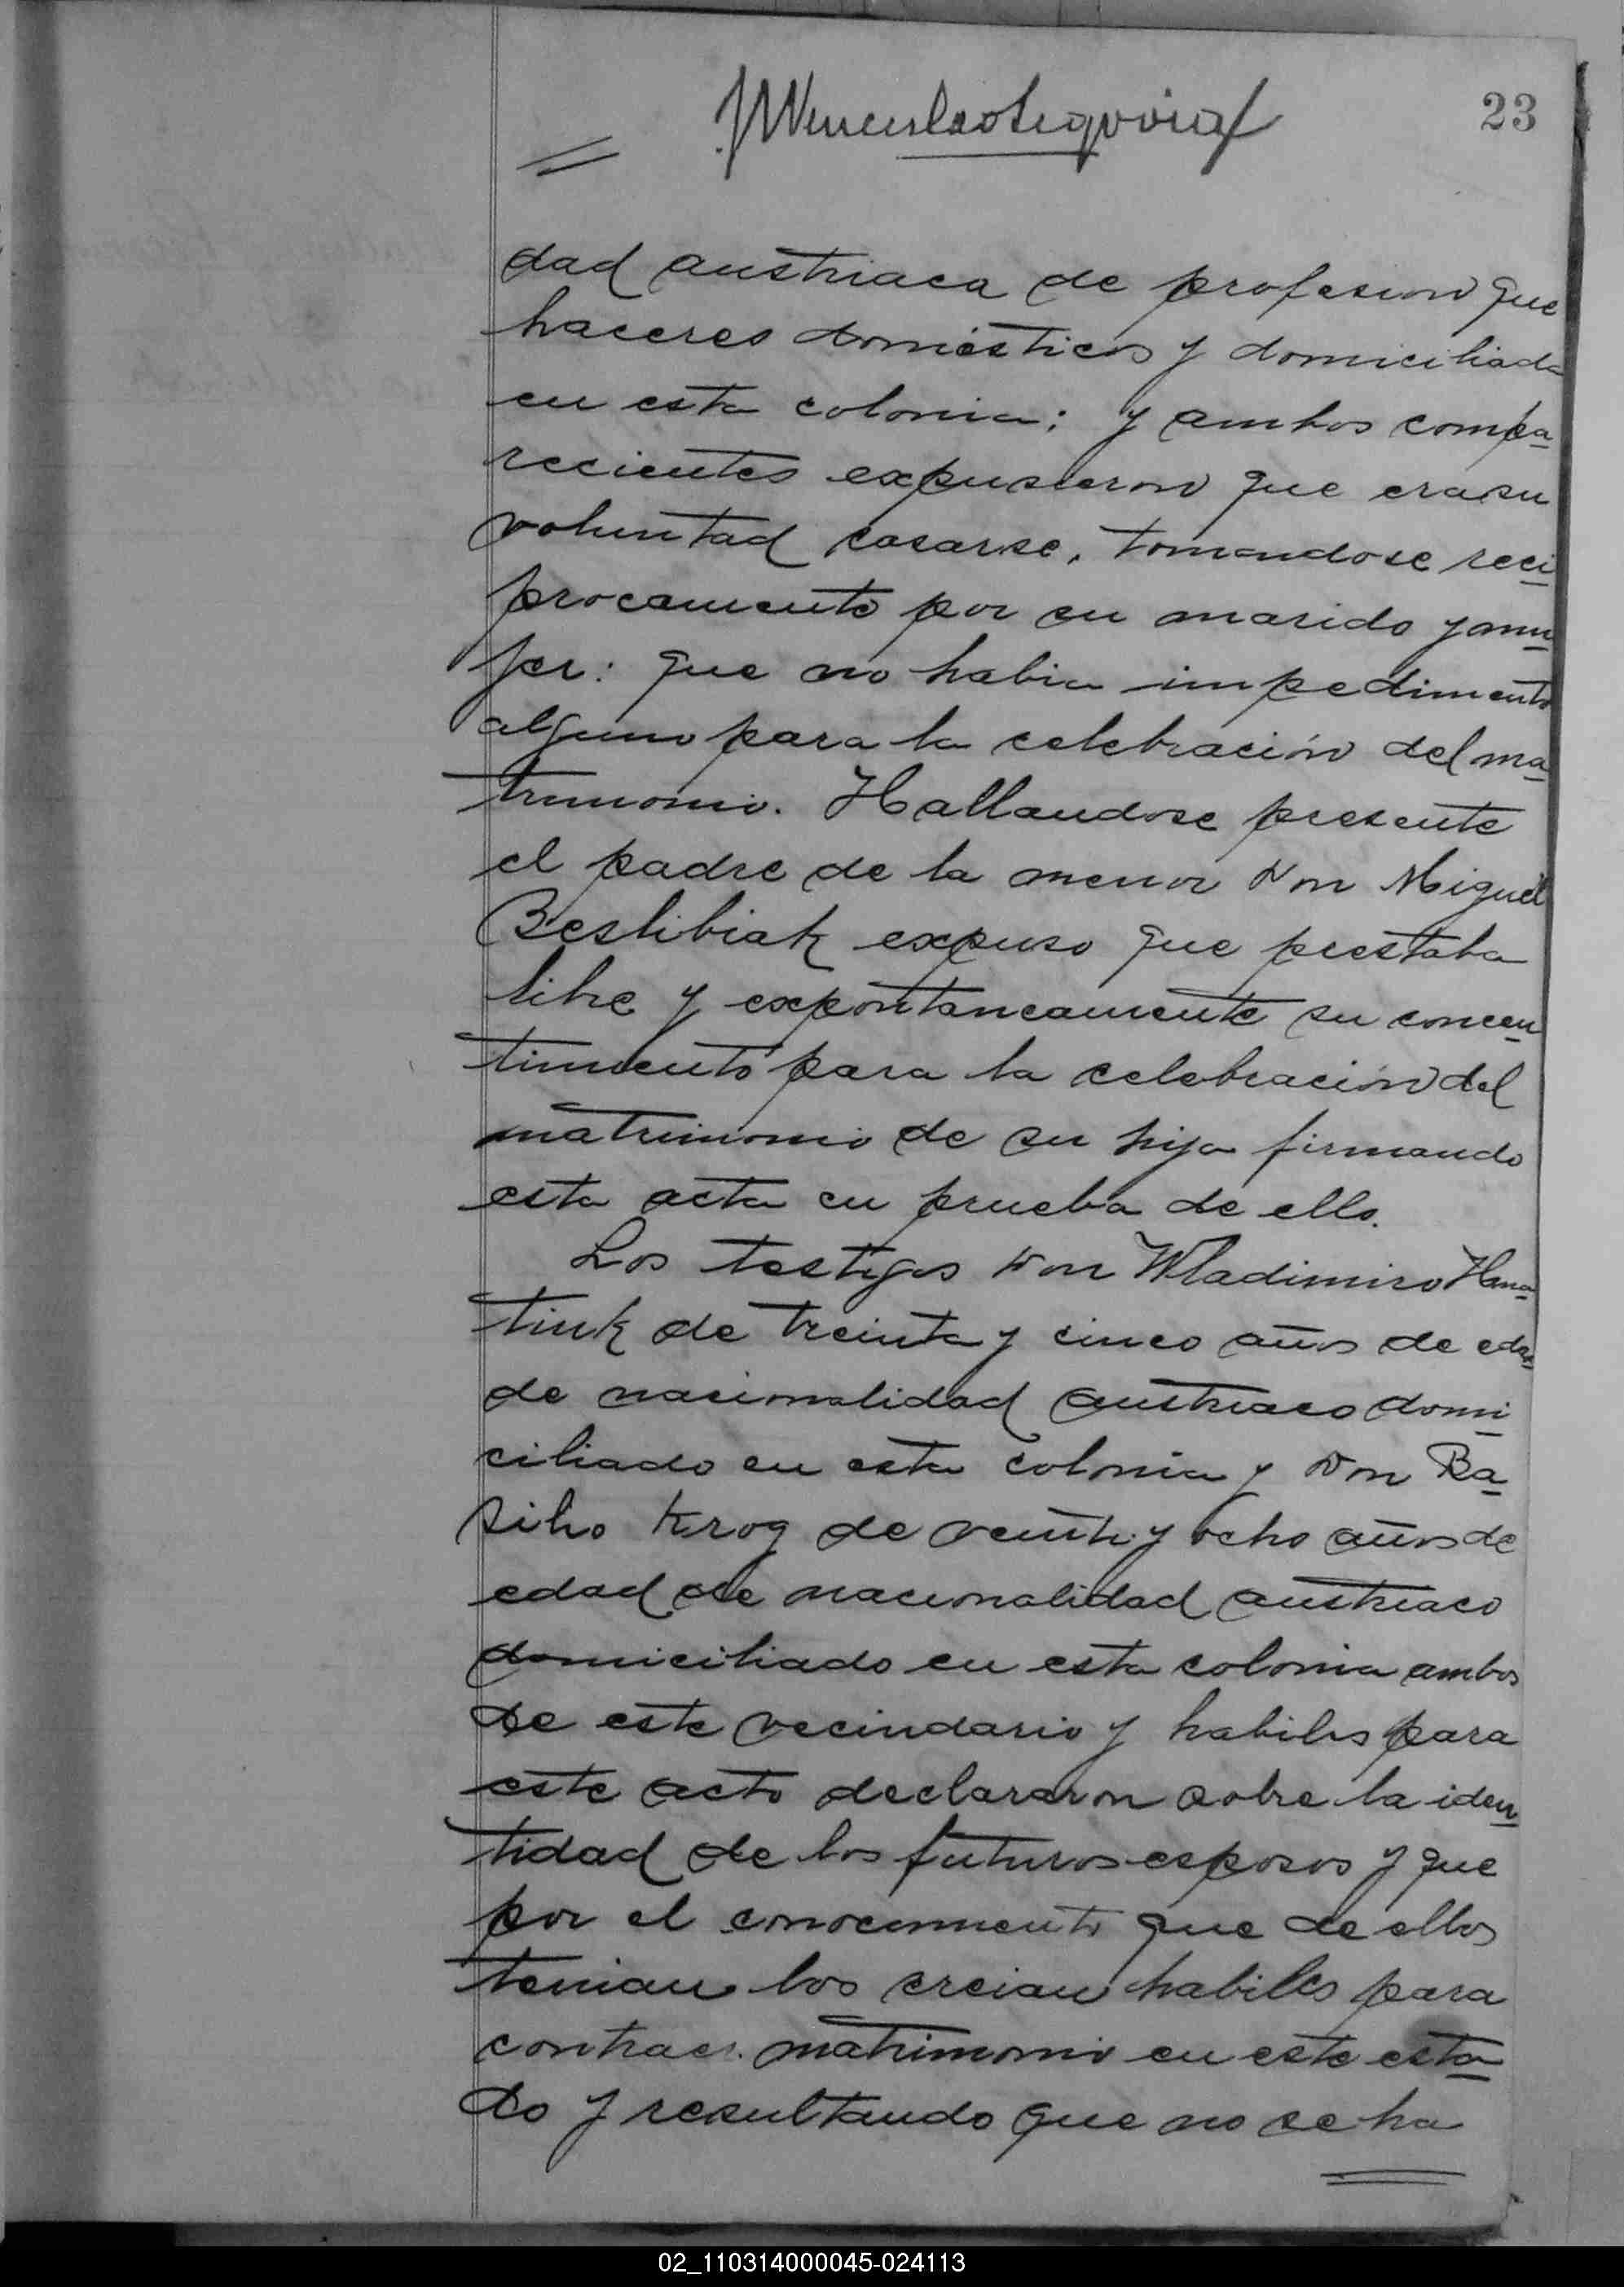 23
dad austriaca de profesion que
haceres domésticos y domiciliada
en esta colonia; y ambos compa
recientes expusieron que era su
voluntad casarse, tomandose reci
procamente por su marido y mu
jer: que no habia impedimento
alguno para la celebración del ma
trimonio. Hallandose presente
el padre de la menor Don Miguel
Beslibiak expuso que prestaba
libre y expontaneamente su concen
timiento para la celebración del
matrimonio de su hija firmando
esta acta en prueba de ello.
Los testigos Don Wladimiro Hna
tiuk de treinta y cinco años de edad
de nacionalidad austriaco domi
ciliado en esta colonia y Don Ba
silio Krog de veinte y ocho años de
edad de nacionalidad austriaco
domiciliado en esta colonia ambos
de este vecindario y habiles para
este acto declararon sobre la iden
tidad de los futuros esposos y que
por el conocimiento que de ellos
tenian los creian habiles para
contraer matrimonio en este esta
do y resultando que no se ha
02_110314000045-024113